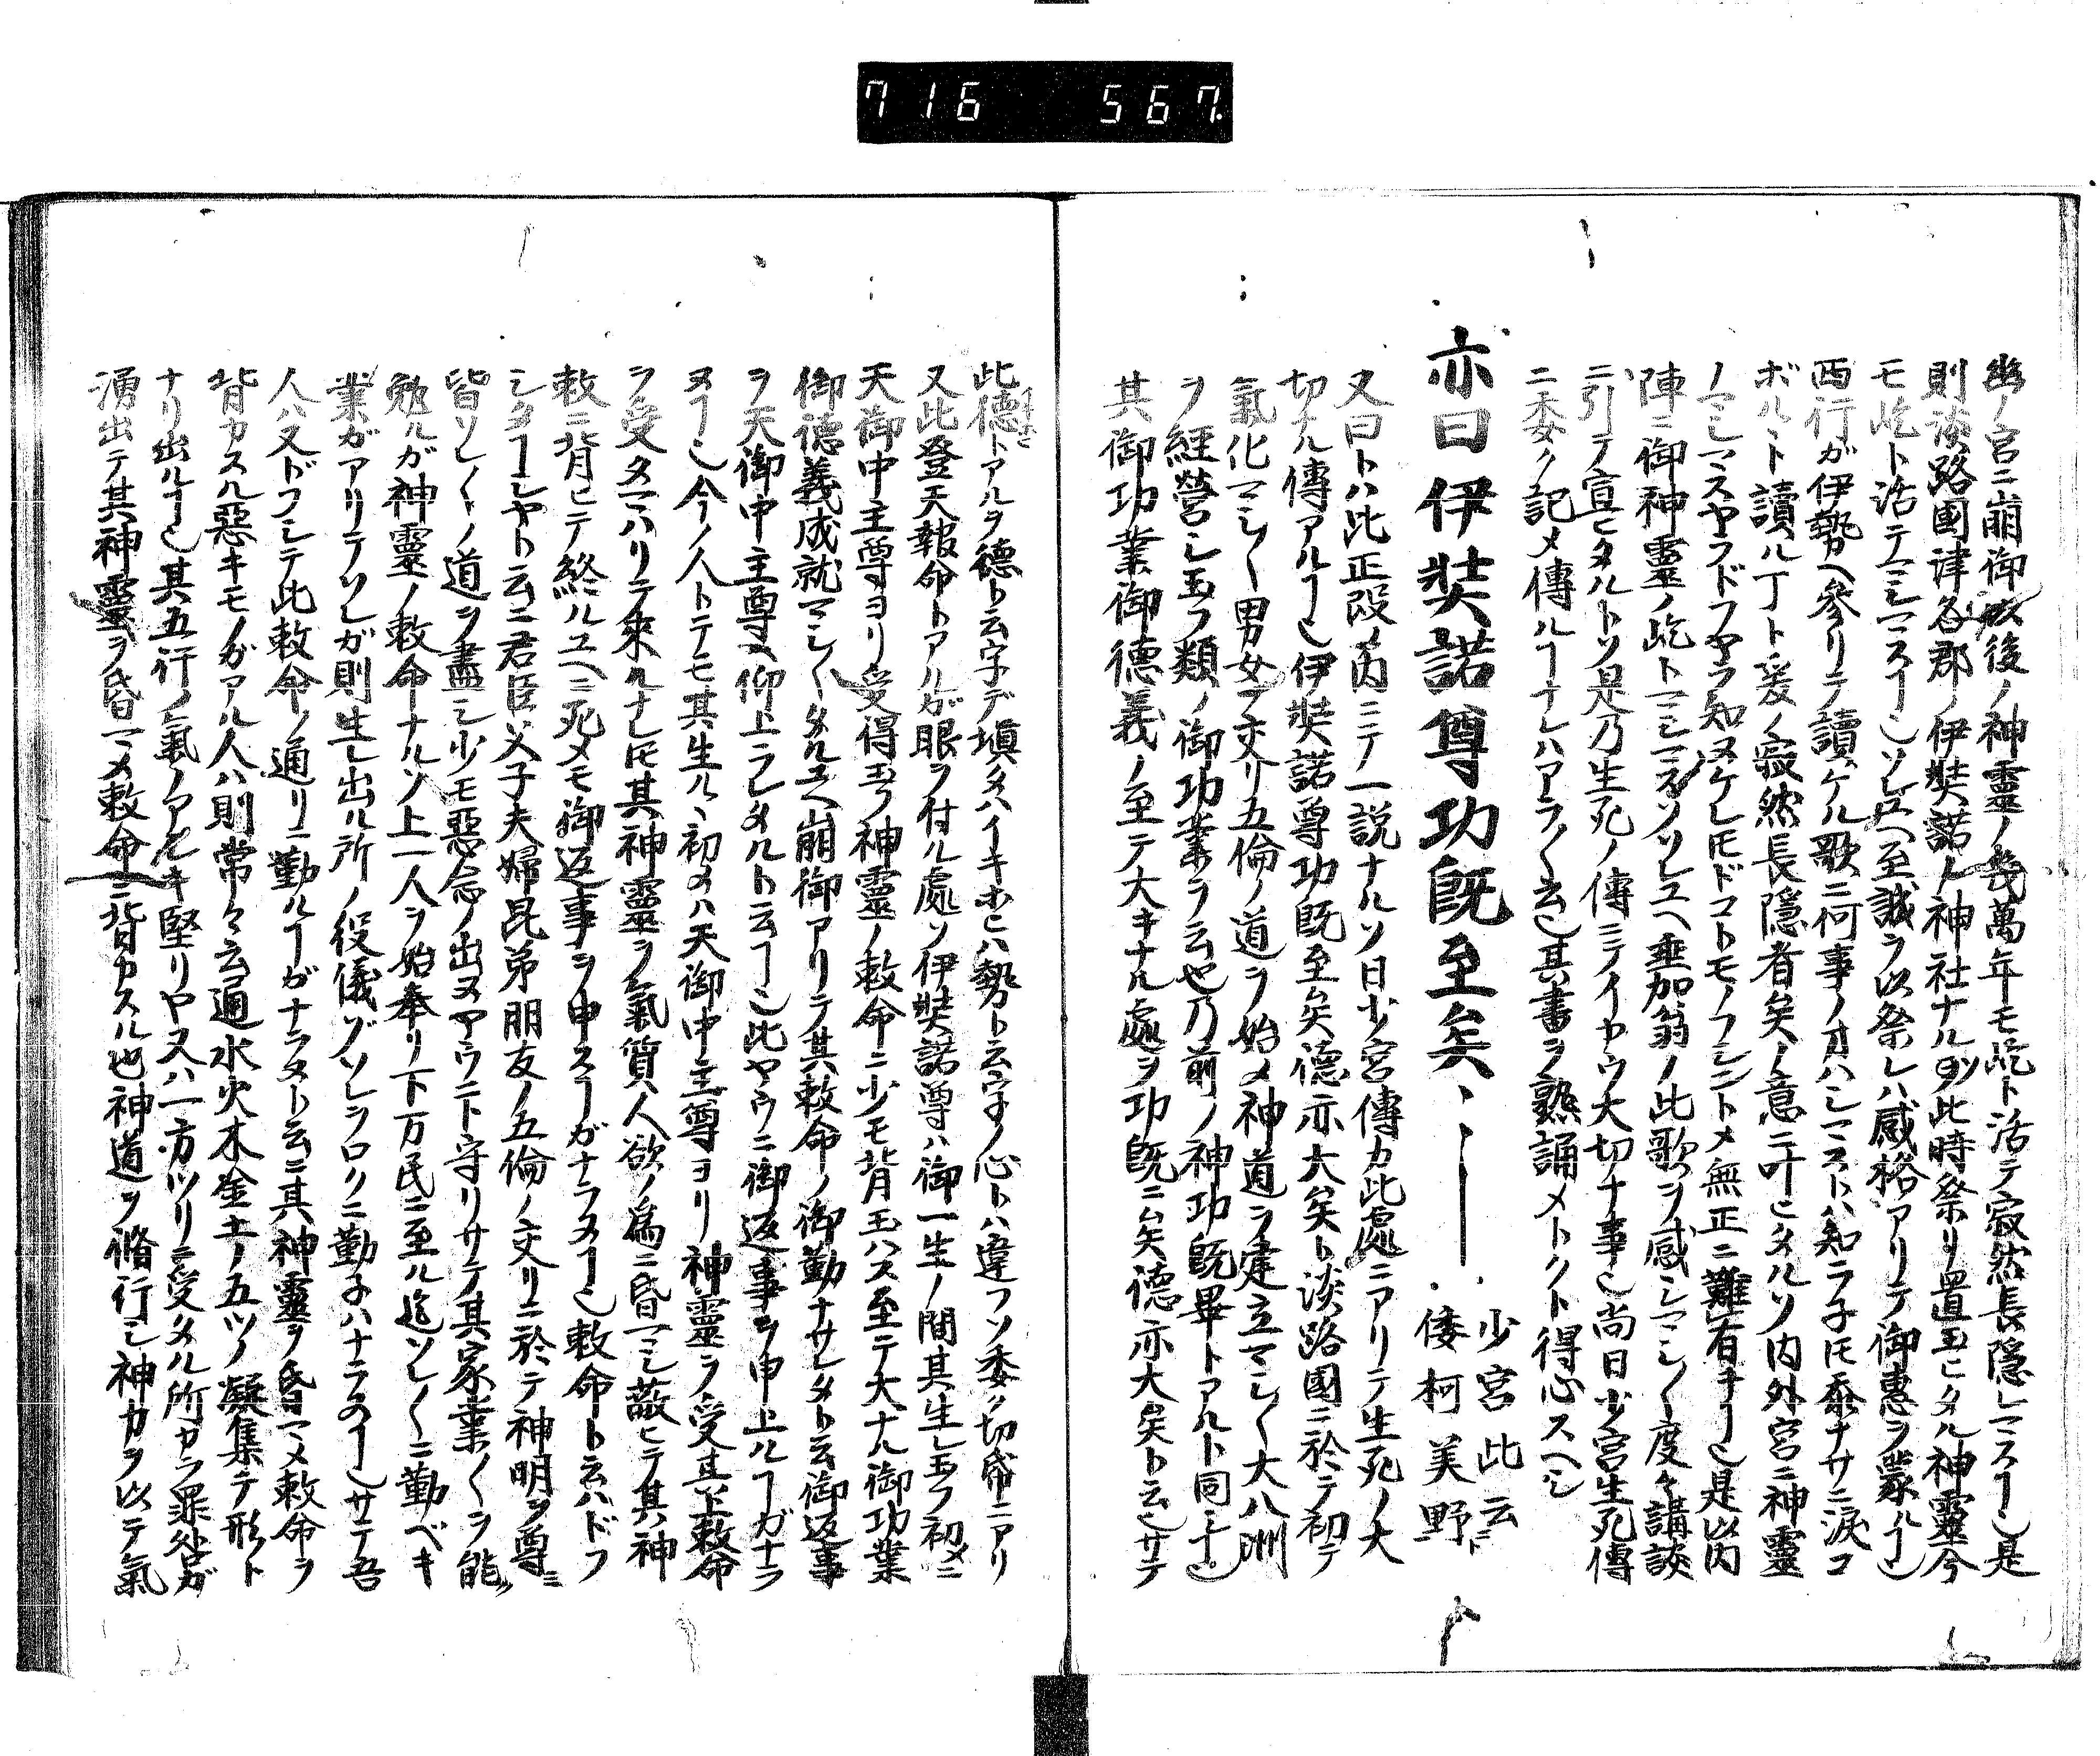 716 567
幽ノ宮ニ崩御以後ノ神靈ノ幾萬年モ屹ト活テ寂然長隱レマスヿ也是
則淡路國津名郡ノ伊奘諾ノ神社ナルゾ此時祭リ置玉ヒタル神靈今
モ屹ト活テマシマスヿ也ソレユヘ至誠ヲ以祭レハ感格アリテ御惠ヲ蒙ルヿ也
西行ガ伊勢ヘ參リテ讀ケル歌ニ何事ノオハシマストハ知ラ子𪜈忝ナサニ淚コ
ボルヽト讀ル丁ト爰ノ寂然長隱者矣ノ意ニ叶ヒタルソ内外宮ニ神靈
ノマシマスヤラドフヤラ知ヌケレ𪜈ドコトモノフシントメ無正ニ難有キヿ也是以内
陣ニ御神靈ノ屹トマシマスソソレユヘ垂加翁ノ此歌ヲ感シマシ〱度々講談
ニ引テ宣ヒタルトソ是乃生死ノ傳ニテイカウ大切ナ事也尚日少宮生死傳
ニ委ク記メ傳ルヿナレハアラ〱云也其書ヲ熟誦メトクト得心スヘシ
亦曰伊奘諾尊功既至矣、、――
少宮此云
倭柯美野
又曰トハ此正段ノ内ニテノ一説ナルソ日少ノ宮傳カ此處ニアリテ生死ノ大
切ナル傳アルヿ也伊奘諾尊功既至矣德亦大矣ト淡路國ニ於テ初テ
氣化マシ〱男女ヲ定リ五倫ノ道ヲ始メ神道ヲ建立マシ〱大八洲
ヲ經營シ玉フ類ノ御功業ヲ云也乃前ノ神功既畢トアルト同シヿ也
其御功業御德義ノ至テ大キナル處ヲ功既ニ至矣德亦大矣ト云也サテ
此德トアルヲ德ト云字デ塡タハイキホヒハ勢ト云字ノ心トハ違フソ委ク切帋ニアリ
又此登天報命トアルガ眼ヲ付ル處ソ伊奘諾尊ハ御一生ノ間其生レ玉フ初メニ
天御中主尊ヨリ受得玉フ神靈ノ敕命ニ少モ背玉ハス至テ大ナル御功業
御德義成就マシ〱タルユヘ崩御アリテ其敕命ノ御勤ナサレタト云御返事
ヲ天御中主尊ヘ仰上ラレタルト云ヿ也此ヤウニ御返事ヲ申上ルヿガナラ
ヌヿ也今ノ人トテモ其生ルヽ初メハ天御中主尊ヨリ神靈ヲ受其上敕命
ヲ受タマハリテ來タナレ𪜈其神靈ヲ氣質人欲ノ爲ニ昏マシ蔽ヒテ其神
敕ニ背ヒテ終ルユヘニ死メモ御返事ヲ申スヿガナラヌヿ也敕命ト云ハドフ
シタヿシヤト云ニ君臣父子夫婦昆弟朋友ノ五倫ノ交リニ於テ神明ヲ尊ミ
皆ソレ〱ノ道ヲ盡シ少モ惡念ノ出ヌヤウニト守リサテ其家業〱ヲ能ツ
勉ルガ神靈ノ敕命ナルソ上一人ヲ始奉リ下万民ニ至ル迄ソレ〱ニ勤ベキ
業ガアリテソレガ則生レ出ル所ノ役儀ゾソレヲロクニ勤子ハナラヌヿ也サテ吾
人ハ又ドフシテ此敕命ノ通リニ勤ルヿガナラヌト云ニ其神靈ヲ昏マメ敕命ヲ
背カスル惡キモノガアル人ハ則常々云通水火木金土ノ五ツノ凝集テ形ト
ナリ出ルヿ也其五行ノ氣ノアルキ堅リヤ又ハ一方ツリニ受タル所カラ罪咎ガ
湧出テ其神靈ヲ昏マメ敕命ニ背カスル也神道ヲ脩行シ神力ヲ以テ氣